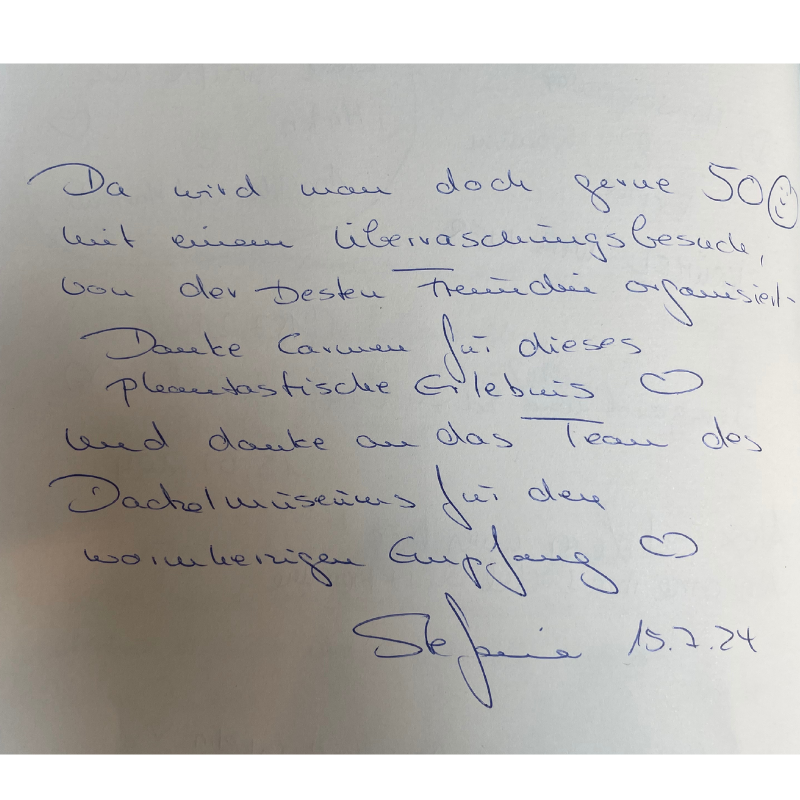 Da wird man doch gerne 50 ☺
mit einem Überraschungsbesuch,
von der besten Freundin organisiert.
Danke Carmen für dieses
phantastische Erlebnis ♡
und danke an das Team des
Dackelmuseums für den
warmherzigen Empfang ♡
Stefanie 15.7.24